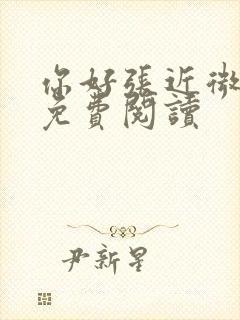 你好張近微
免費閱讀
尹新星